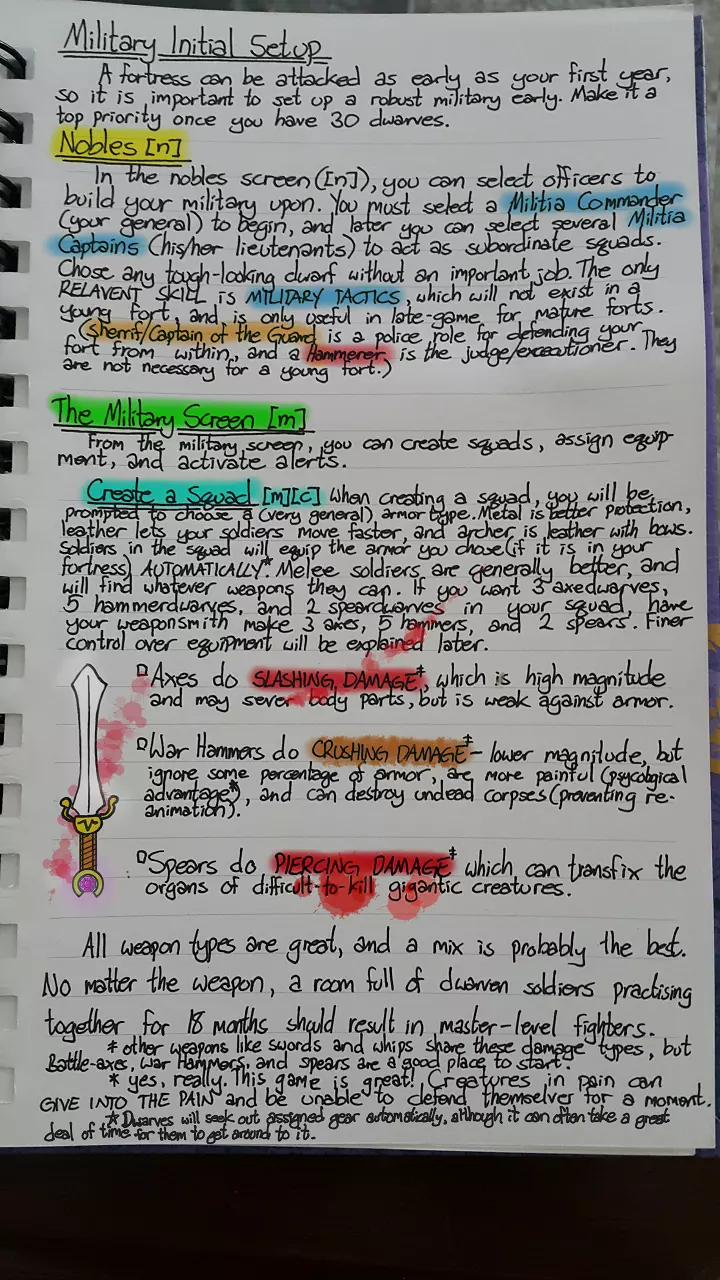 Military Initial Setup
A fortress can be attacked as early as your first year,
so it is important to set up a robust military early. Make it a
top priority once you have 30 dwarves.
Nobles [n]
In the nobles screen ([n]), you can select officers to
build your military upon. You must select a Militia Commander
(your general) to begin, and later you can select several Militia
Captains (his/her lieutenants) to act as subordinate squads.
Chose any tough-looking dwarf without an important job. The only
RELAVENT SKILL is MILITARY TACTICS, which will not exist in a
young fort, and is only useful in late-game for mature forts.
(Sherrif/Captain of the Guard is a police role for defending your
fort from within, and a Hammerer is the judge/executioner. They
are not necessary for a young fort.)
The Military Screen [m]
From the military screen, you can create squads, assign equip-
ment, and activate alerts.
Create a Squad [m][c] When creating a squad, you will be
prompted to choose a (very general) armor type. Metal is better protection,
leather lets your soldiers move faster, and archer is leather with bows.
Soldiers in the squad will equip the armor you chose (if it is in your
fortress) AUTOMATICALLY.* Melee soldiers are generally better, and
will find whatever weapons they can. If you want 3 axedwarves,
5 hammerdwarves, and 2 speardwarves in your squad, have
your weaponsmith make 3 axes, 5 hammers, and 2 spears. Finer
control over equipment will be explained later.
Axes do SLASHING DAMAGE‡, which is high magnitude
and may sever body parts, but is weak against armor.
War Hammers do CRUSHING DAMAGE‡ - lower magnitude, but
ignore some percentage of armor, are more painful (psycological
advantage*), and can destroy undead corpses (preventing re-
animation).
Spears do PIERCING DAMAGE‡ which can transfix the
organs of difficult-to-kill gigantic creatures.
All weapon types are great, and a mix is probably the best.
No matter the weapon, a room full of dwarven soldiers practising
together for 18 months should result in master-level fighters.
‡ other weapons like swords and whips share these damage types, but
Battle-axes, War Hammers, and spears are a good place to start.
* yes, really. This game is great! Creatures in pain can
GIVE INTO THE PAIN and be unable to defend themselves for a moment.
* Dwarves will seek out assigned gear automatically, although it can often take a great
deal of time for them to get around to it.